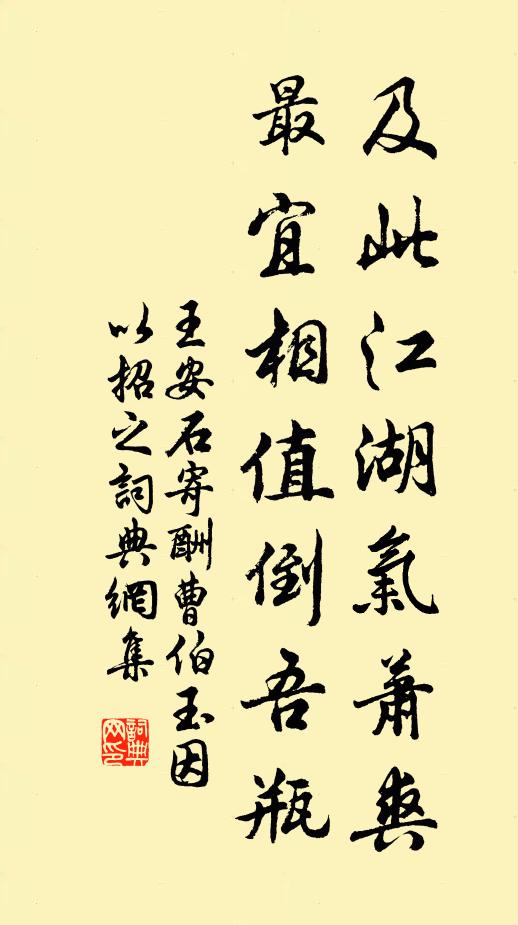 及此江湖氣蕭爽
最宜相值倒吾瓶
王安石寄酬曹伯玉因
以招之詞典網集
詞典網印